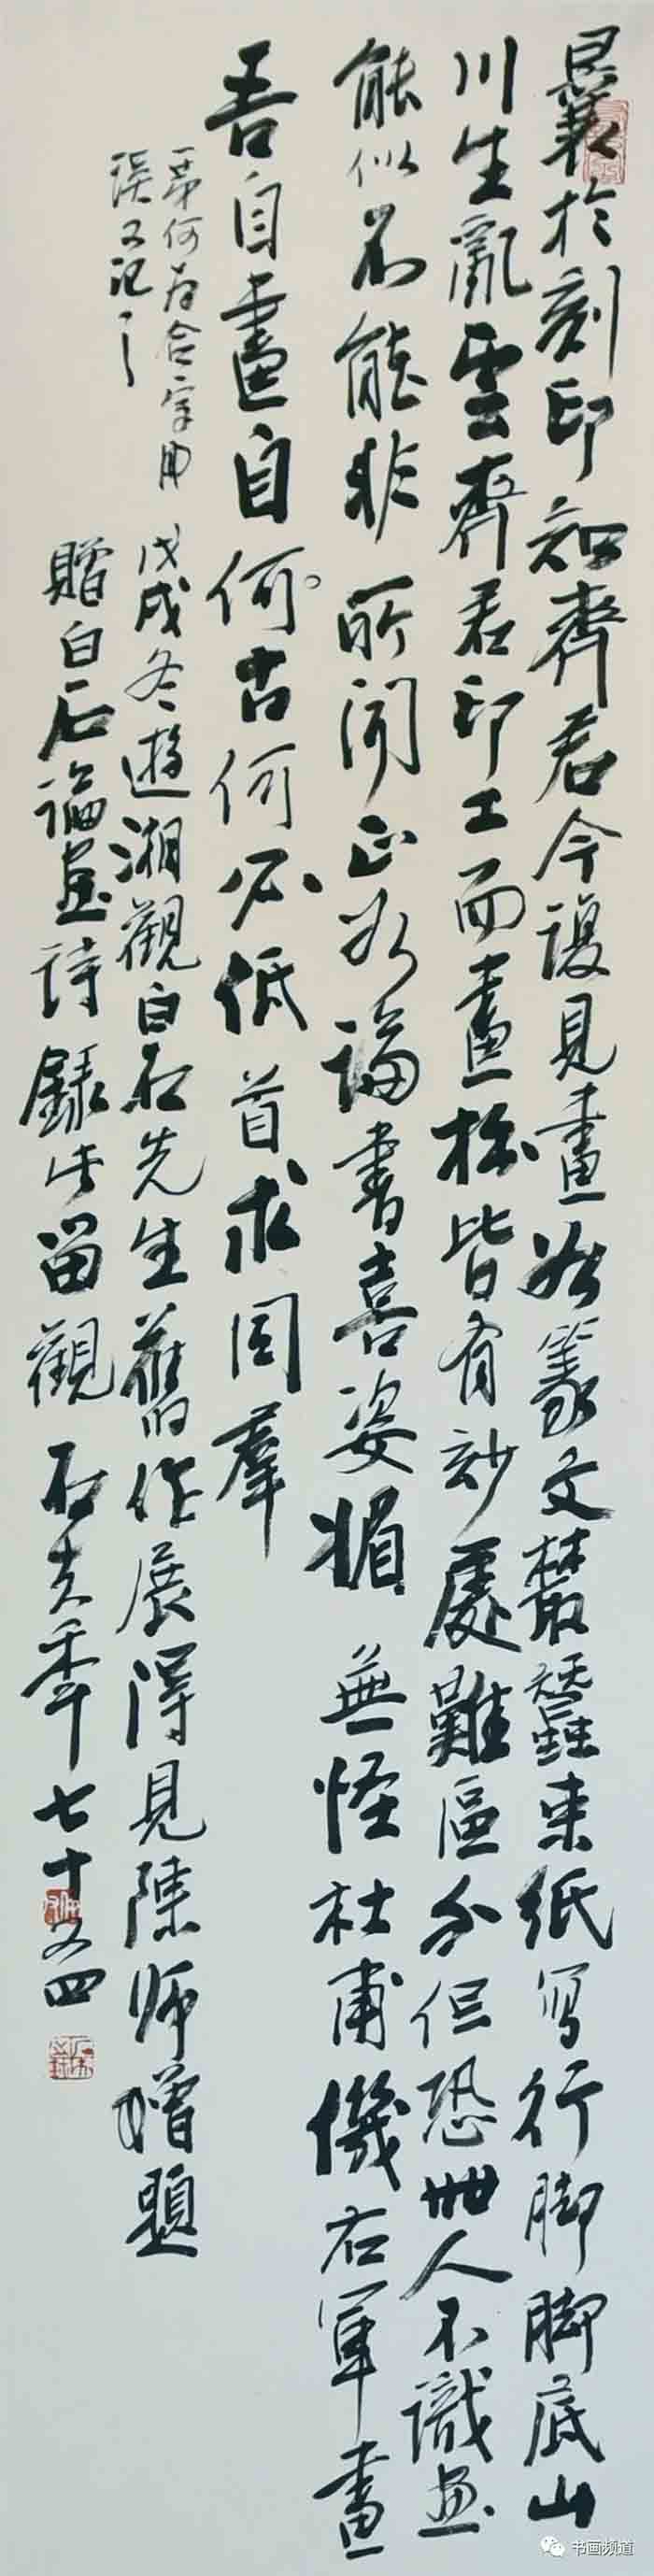 曩於刻印知齊君今復見畫如篆文叢蠶束紙寫行腳腳底山
川生亂雲齊君印工而畫拙皆有妙處難區分但恐世人不識畫
能似不能非所聞正如論書喜姿媚無怪杜甫譏右軍畫
吾自畫自何古何必低首求同羣
第一何為合字用
誤又記之
戊戌冬遊湘觀白石先生舊作展得見陳師曾題
贈白石論畫詩錄此留觀 石夫年七十又四
书画频道